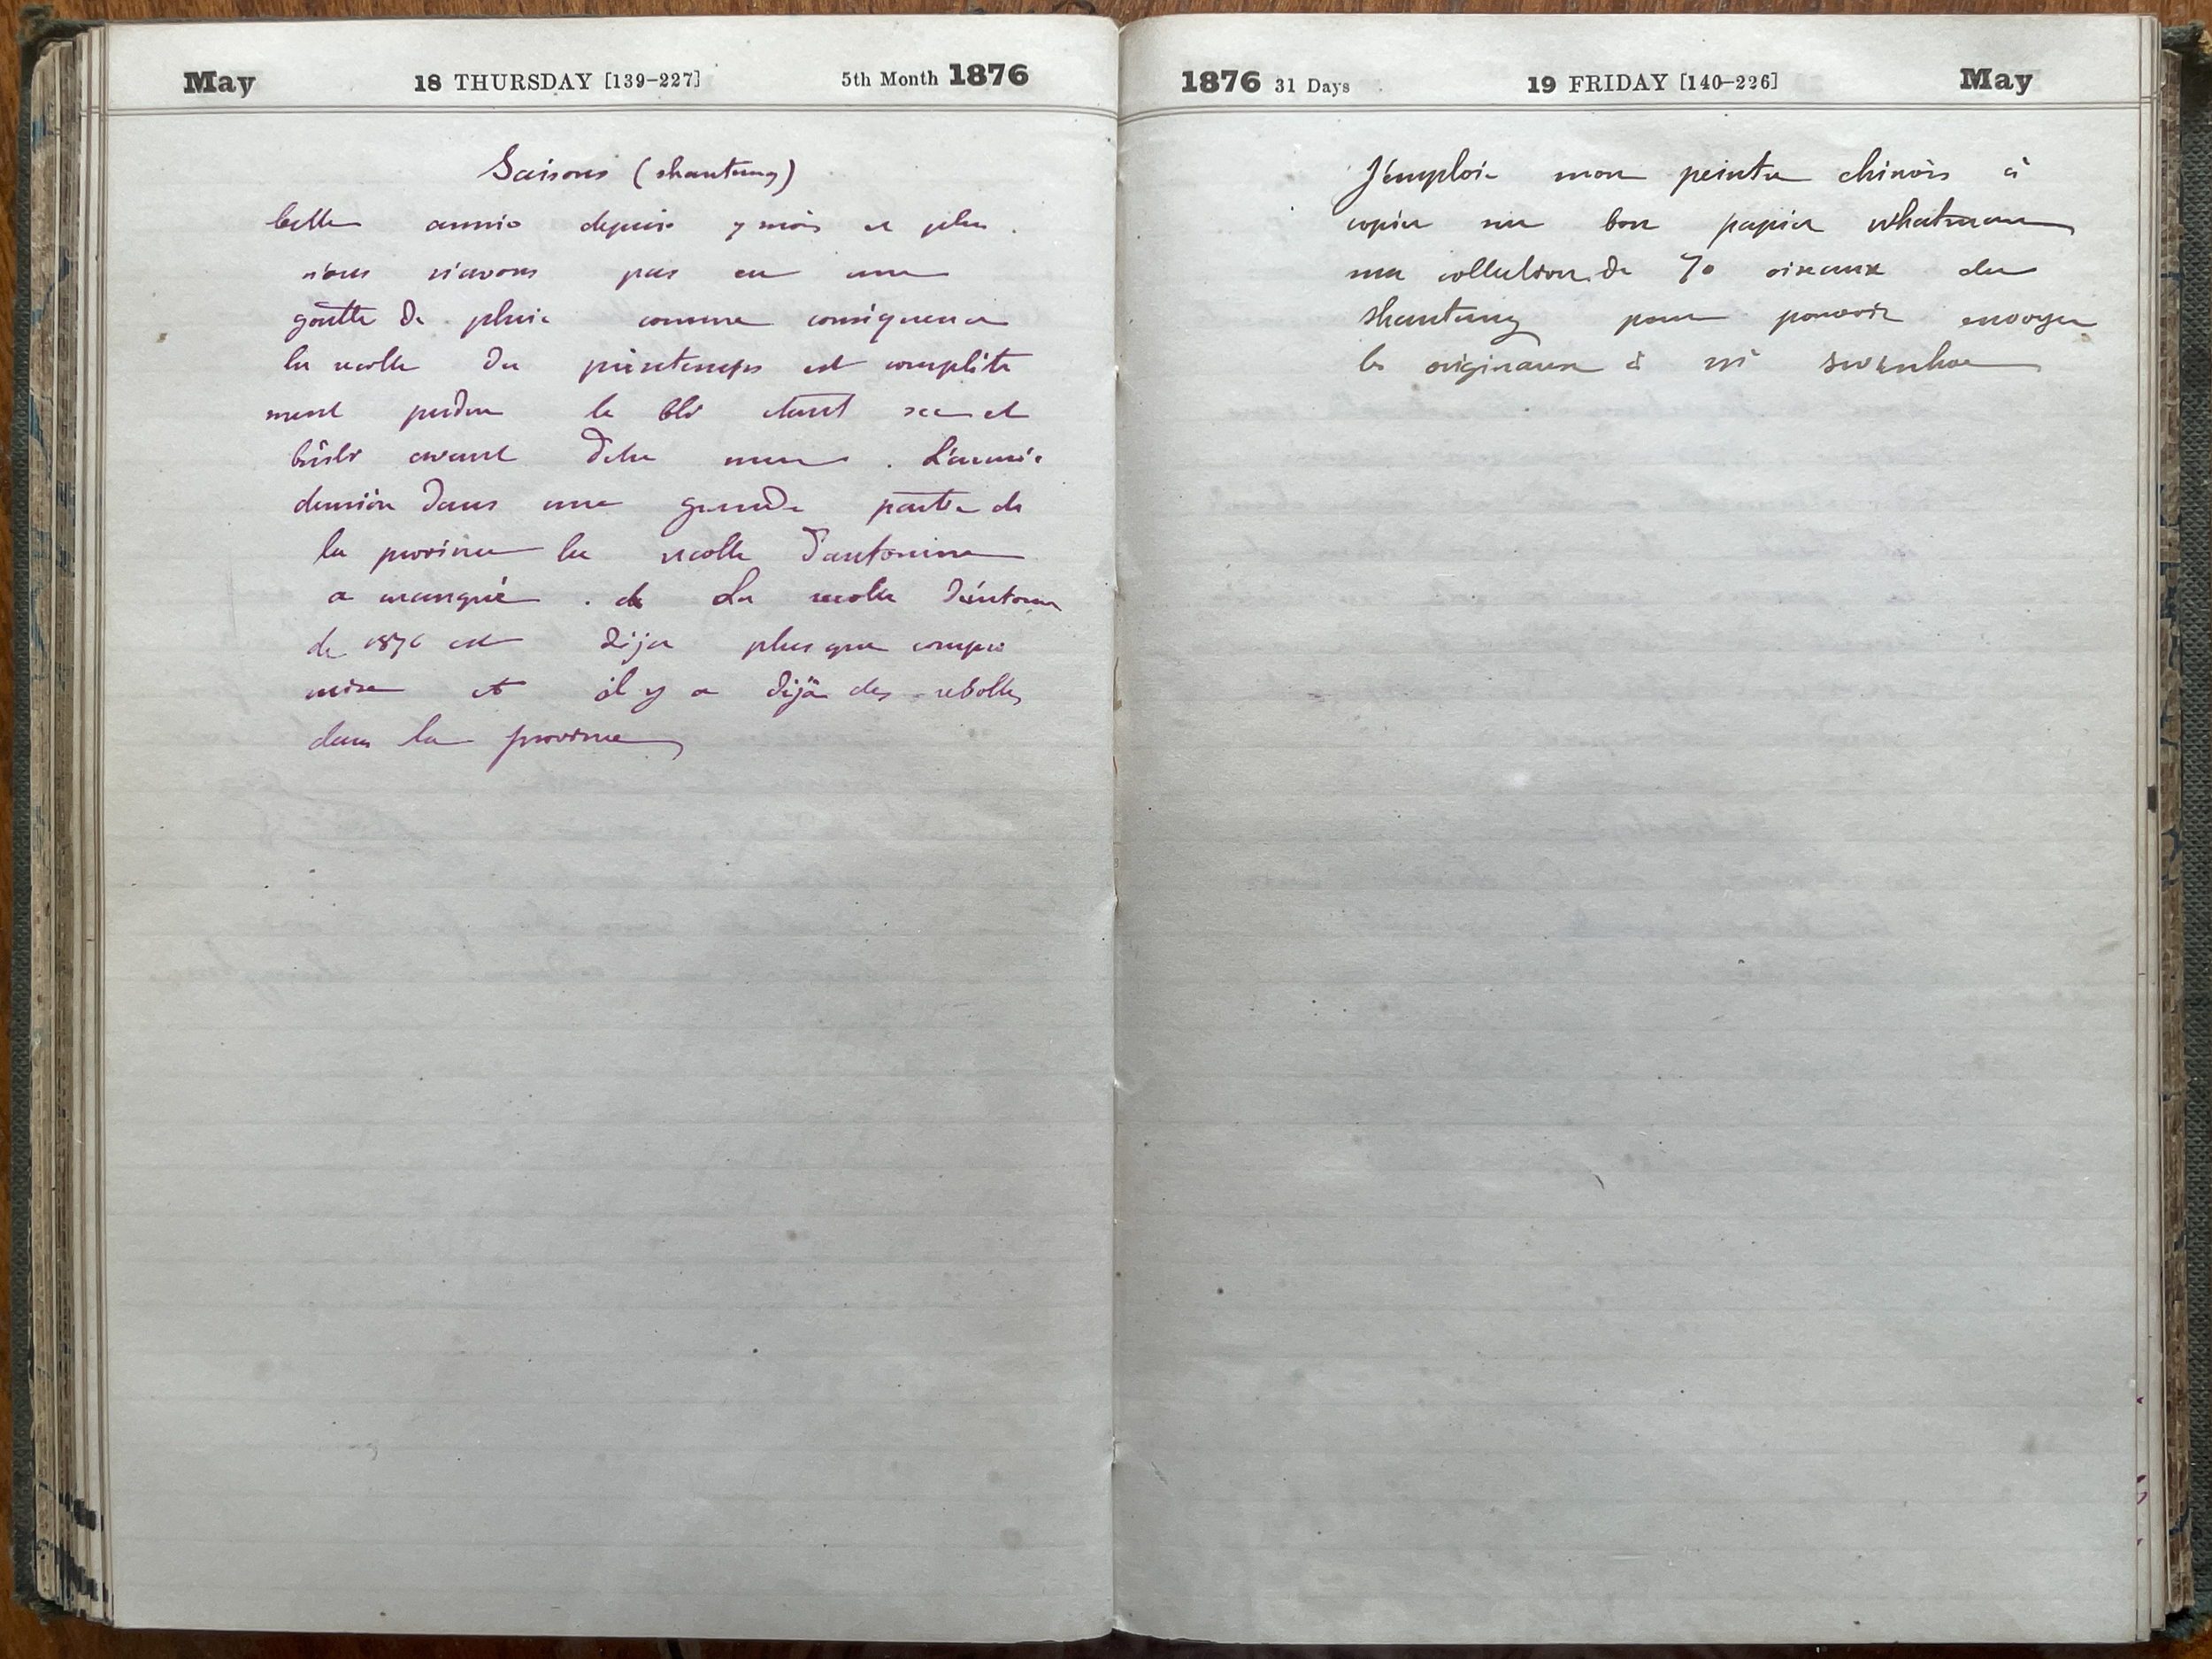 May 18 THURSDAY [139–227] 5th Month 1876
Saisons (shantung)
belle année depuis 7 mois et plus.
nous n'avons pas eu une
goutte de pluie comme conséquence
la recolte du printemps est complète
ment perdue le blé étant sec et
brûlé avant d'etre mur. L'année
dernière dans une grande partie de
la province la recolte d'automne
a manqué. La recolte d'automne
de 1876 est déja plus que compro
mise et il y a déjà des revoltes
dans la province
1876 31 Days 19 FRIDAY [140–226] May
J'emploie mon peintre chinois à
copier sur bon papier whatman
ma collection de 70 oiseaux du
shantung pour pouvoir envoyer
les originaux à mr swinhoe